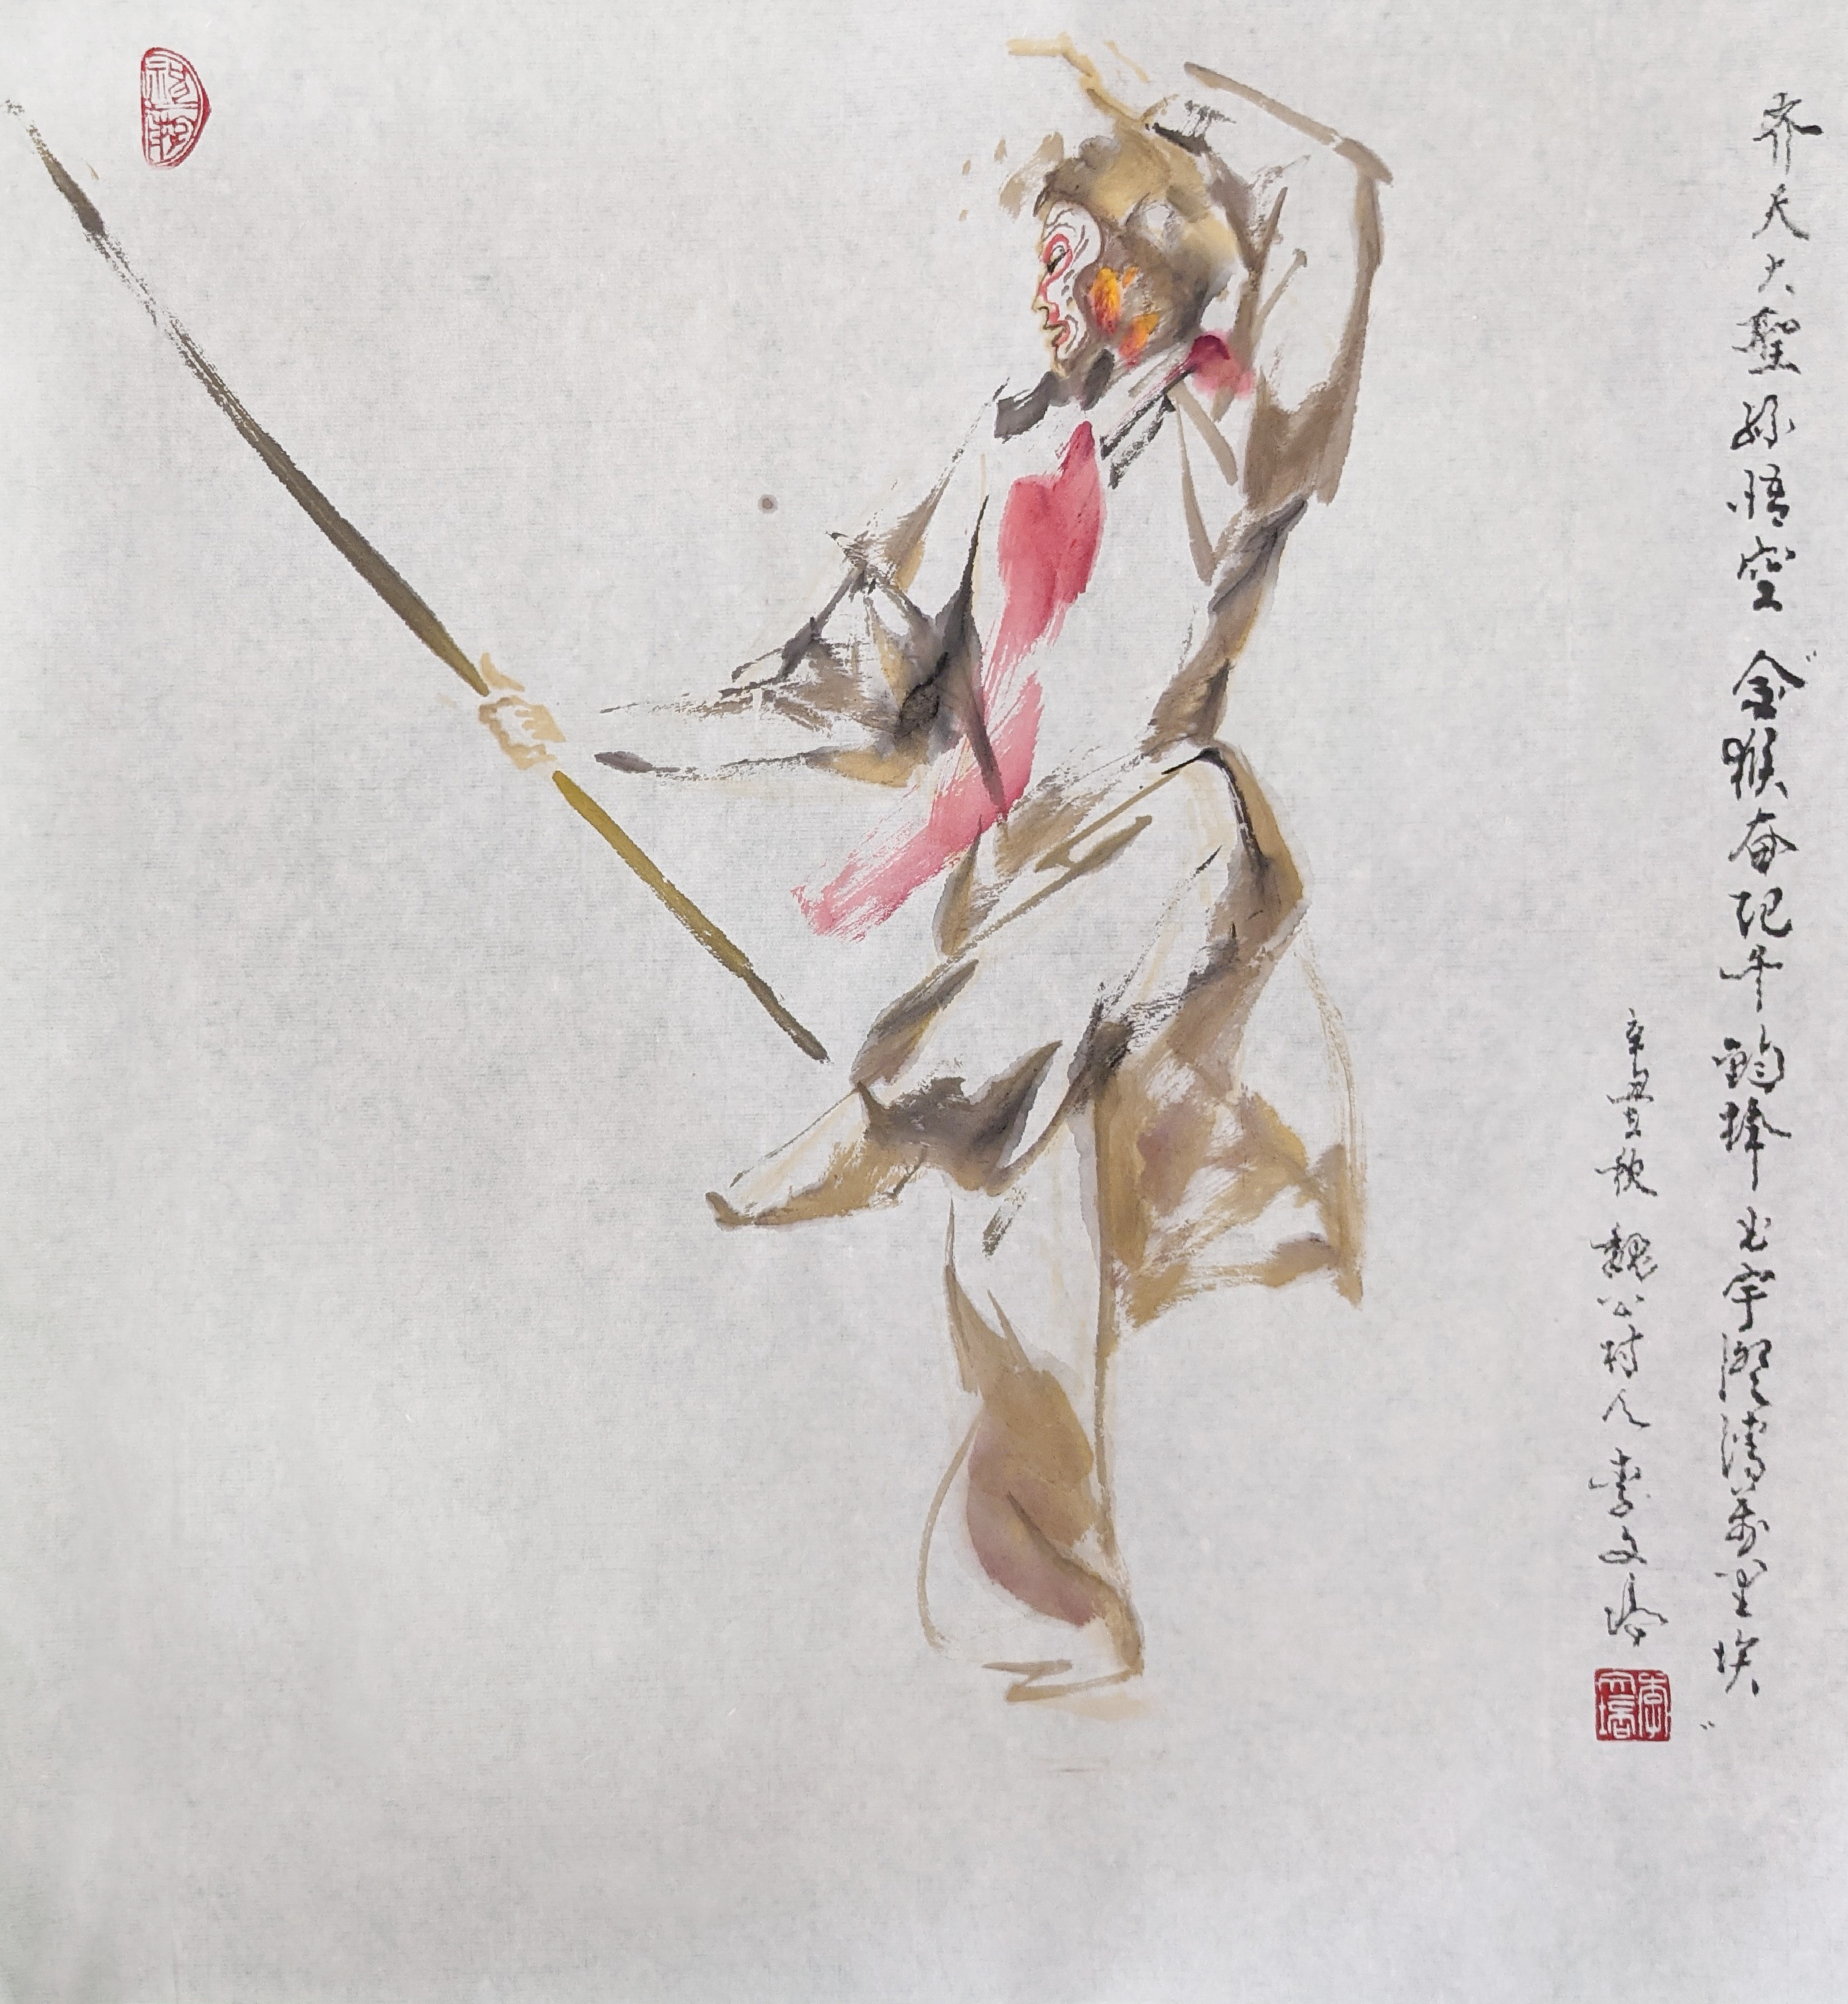 齐天大聖孙悟空"金猴奋起千钧棒玉宇澄清万里埃"
辛丑秋 魏公村人 李文培
李文培